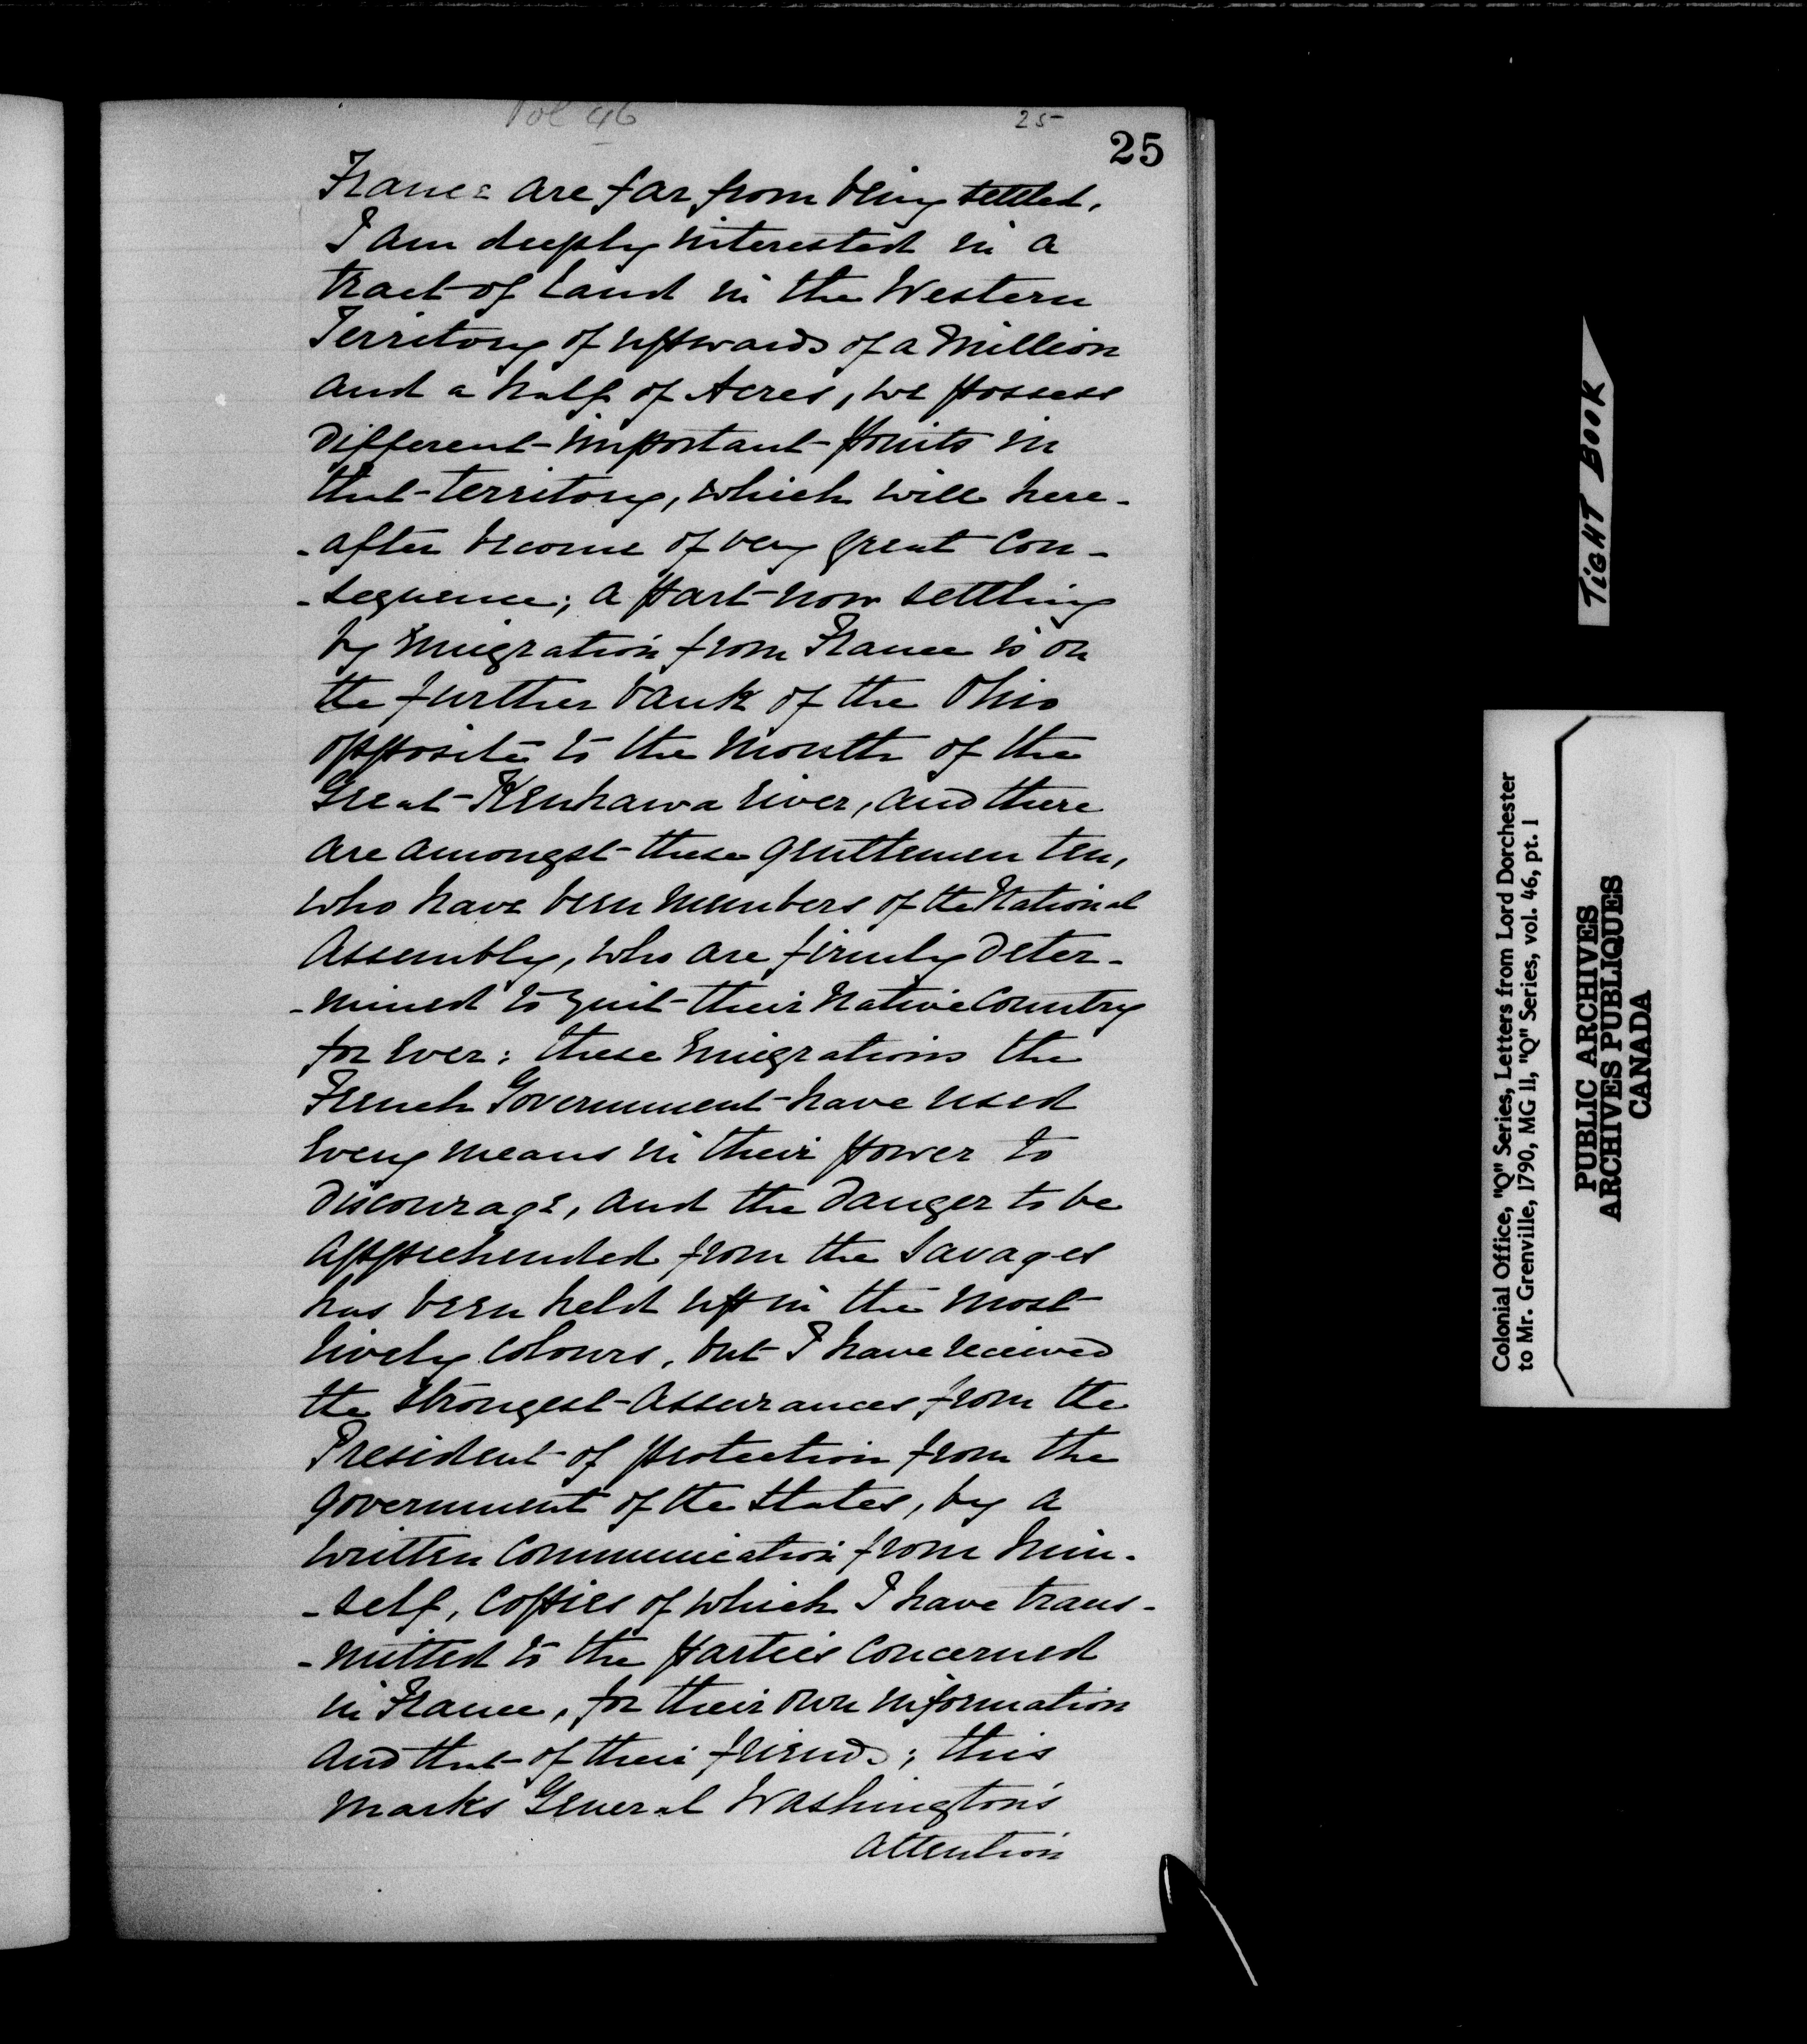 Vol 46
25
25
France are far from being settled.
I am deeply interested in a
tract of Land in the Western
Territory of upwards of a Million
and a half of Acres, we possess
different important points in
that territory, which will here-
-after become of very great Con-
-sequence; a part now settling
by Emigration from France is on
the further bank of the Ohio
opposite to the Mouth of the
Great Kenhawa river, and there
are amongst these gentlemen ten,
who have been Members of the National
Assembly, who are firmly deter-
-mined to quit their Native Country
for ever: these Emigrations the
French Government have used
every means in their power to
discourage, and the danger to be
apprehended from the Savages
has been held up in the most
lively colours, but I have received
the strongest assurances from the
President of protection from the
government of the States, by a
written communication from him-
-self, coppies of which I have trans-
-mitted to the parties concerned
in France, for their own information
and that of their friends; this
marks General Washington's
attention
TIGHT BOOK
Colonial Office, "Q" Series, Letters from Lord Dorchester
to Mr. Grenville, 1790, MG 11, "Q" Series, vol. 46, pt. 1
PUBLIC ARCHIVES
ARCHIVES PUBLIQUES
CANADA